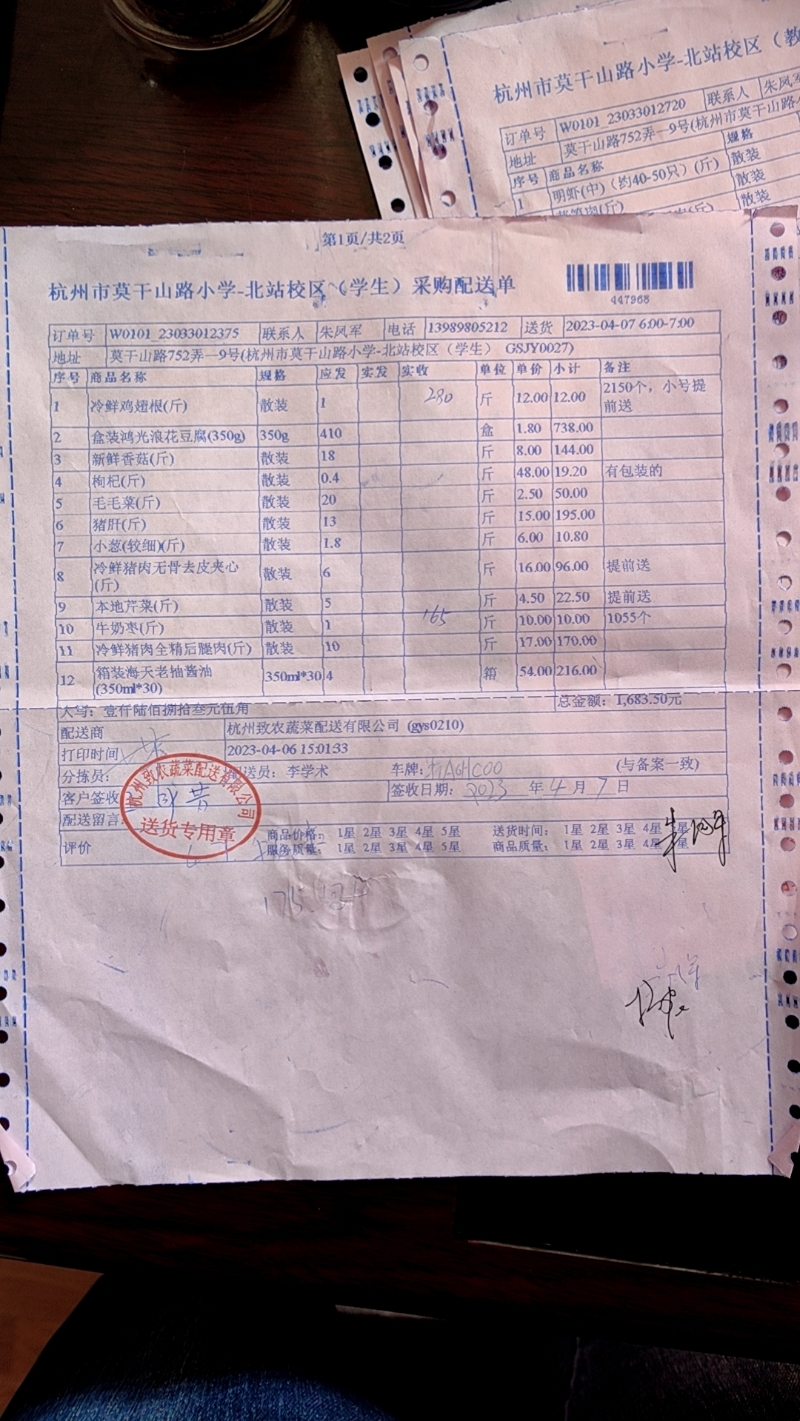 杭州市莫干山路小学-北站校区（教
订单号 W0101_23033012720 联系人 朱凤军
地址 莫干山路752弄一9号(杭州市莫干山路小学-北站校区
序号 商品名称 规格
1 明虾(中)（约40-50只）(斤) 散装
散装
散装
第1页/共2页
杭州市莫干山路小学-北站校区（学生）采购配送单
447968
订单号 W0101_23033012375 联系人 朱凤军 电话 13989805212 送货 2023-04-07 6:00-7:00
地址 莫干山路752弄一9号(杭州市莫干山路小学-北站校区（学生） GSJY0027)
序号 商品名称 规格 应发 实发 实收 单位 单价 小计 备注
1 冷鲜鸡翅根(斤) 散装 1 280 斤 12.00 12.00 2150个，小号提前送
2 盒装鸿光浪花豆腐(350g) 350g 410 盒 1.80 738.00
3 新鲜香菇(斤) 散装 18 斤 8.00 144.00
4 枸杞(斤) 散装 0.4 斤 48.00 19.20 有包装的
5 毛毛菜(斤) 散装 20 斤 2.50 50.00
6 猪肝(斤) 散装 13 斤 15.00 195.00
7 小葱(较细)(斤) 散装 1.8 斤 6.00 10.80
8 冷鲜猪肉无骨去皮夹心(斤) 散装 6 斤 16.00 96.00 提前送
9 本地芹菜(斤) 散装 5 斤 4.50 22.50 提前送
10 牛奶枣(斤) 散装 1 165 斤 10.00 10.00 1055个
11 冷鲜猪肉全精后腿肉(斤) 散装 10 斤 17.00 170.00
12 箱装海天老抽酱油(350ml*30) 350ml*30 4 箱 54.00 216.00
大写：壹仟陆佰捌拾叁元伍角 总金额：1,683.50元
配送商 杭州致农蔬菜配送有限公司 (gys0210)
打印时间 2023-04-06 15:01:33
分拣员： 配送员：李学术 车牌： (与备案一致)
客户签收 签收日期：2023 年 4 月 7 日
配送留言：
杭州致农蔬菜配送有限公司
送货专用章
评价 商品价格： 1星 2星 3星 4星 5星 送货时间： 1星 2星 3星 4星 5星
服务质量： 1星 2星 3星 4星 5星 商品质量： 1星 2星 3星 4星 5星
朱凤军